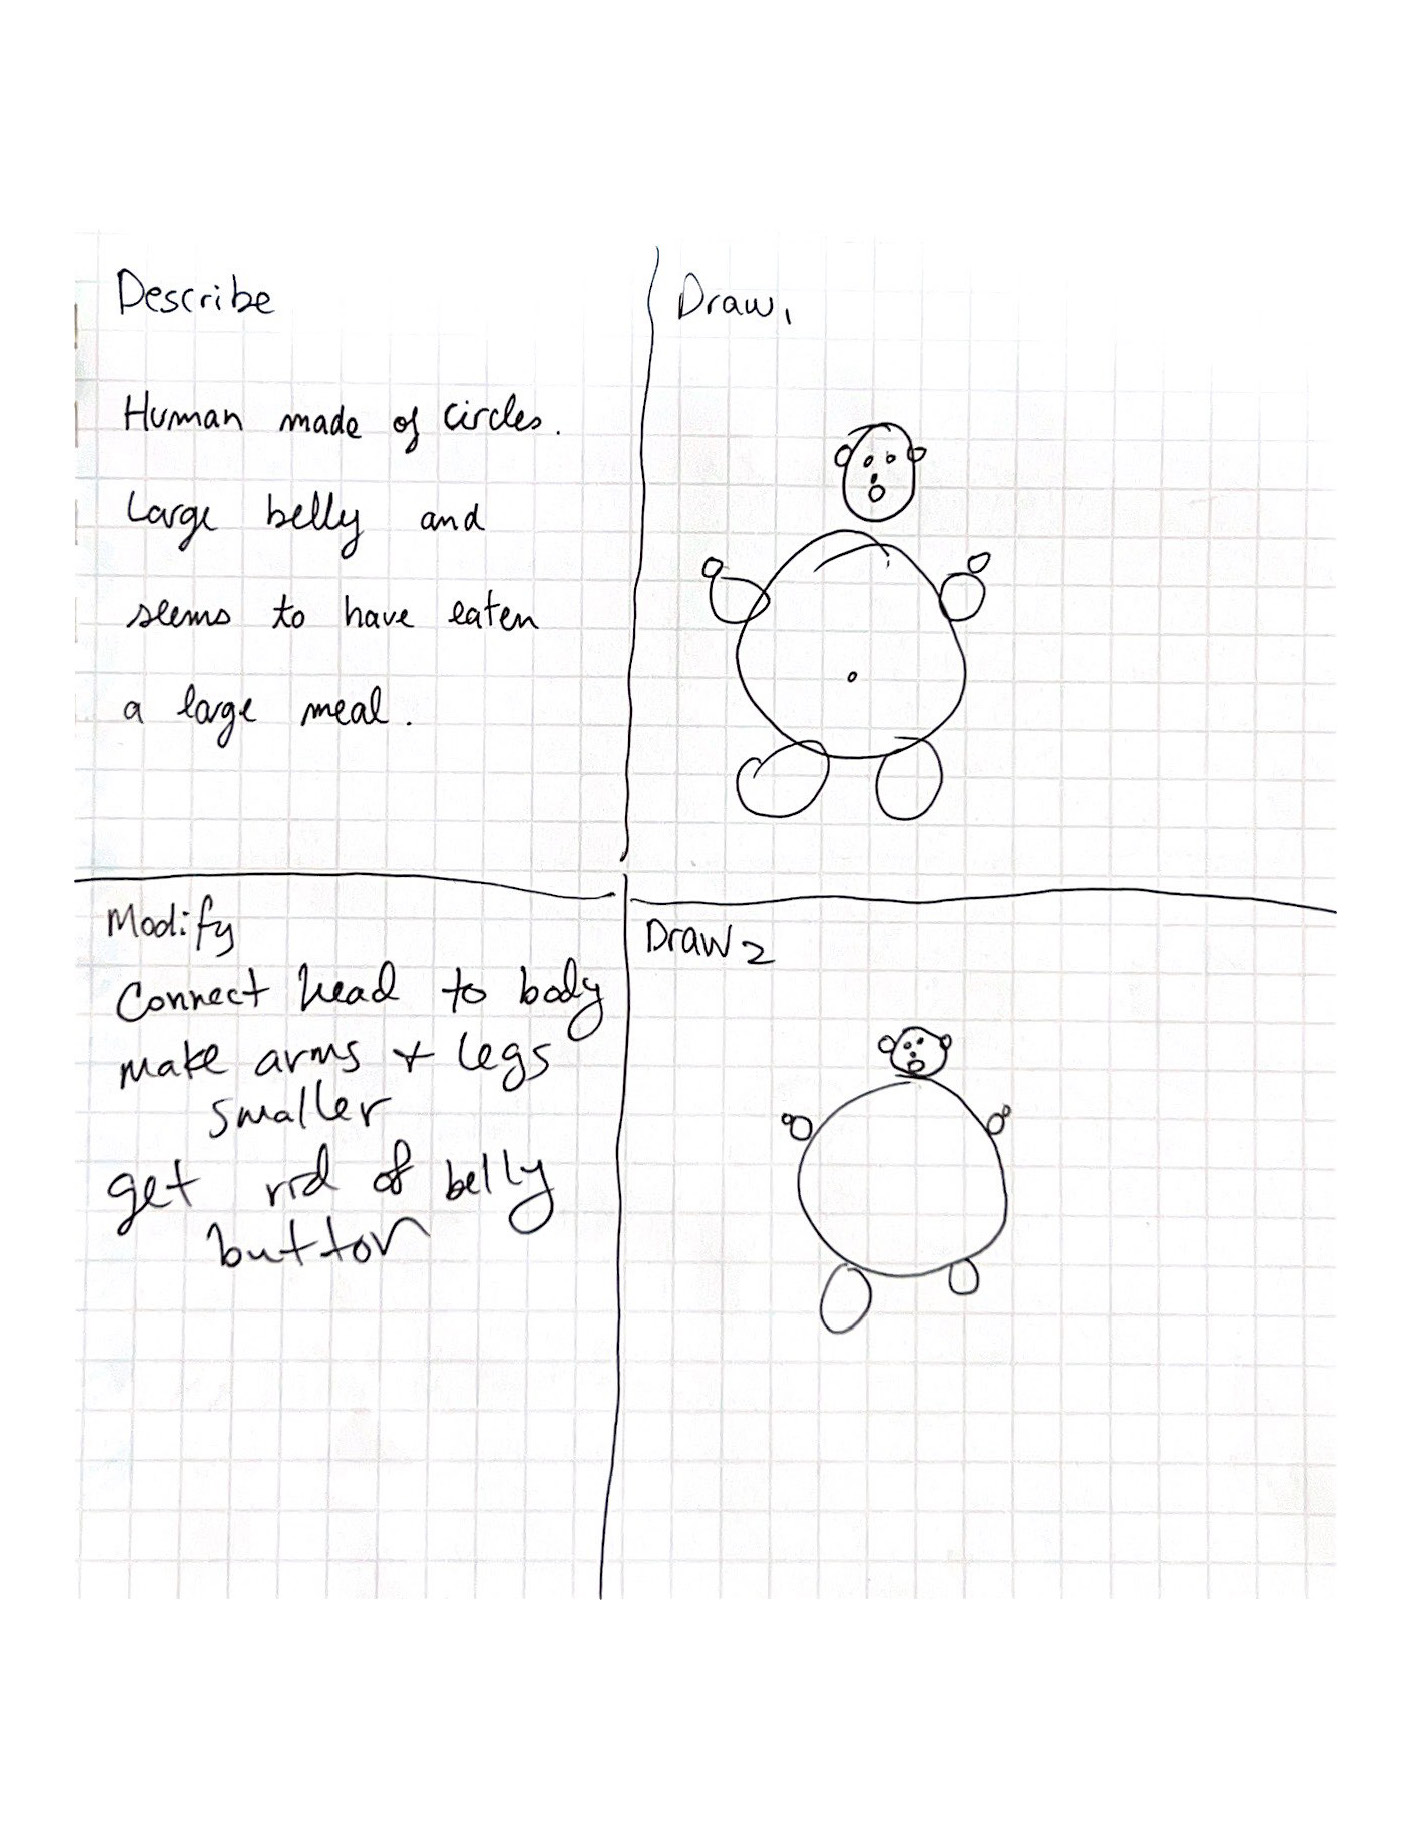 Describe
Human made of circles.
Large belly and
seems to have eaten
a large meal.
Draw 1
Modify
Connect head to body
make arms + legs
smaller
get rid of belly
button
Draw 2